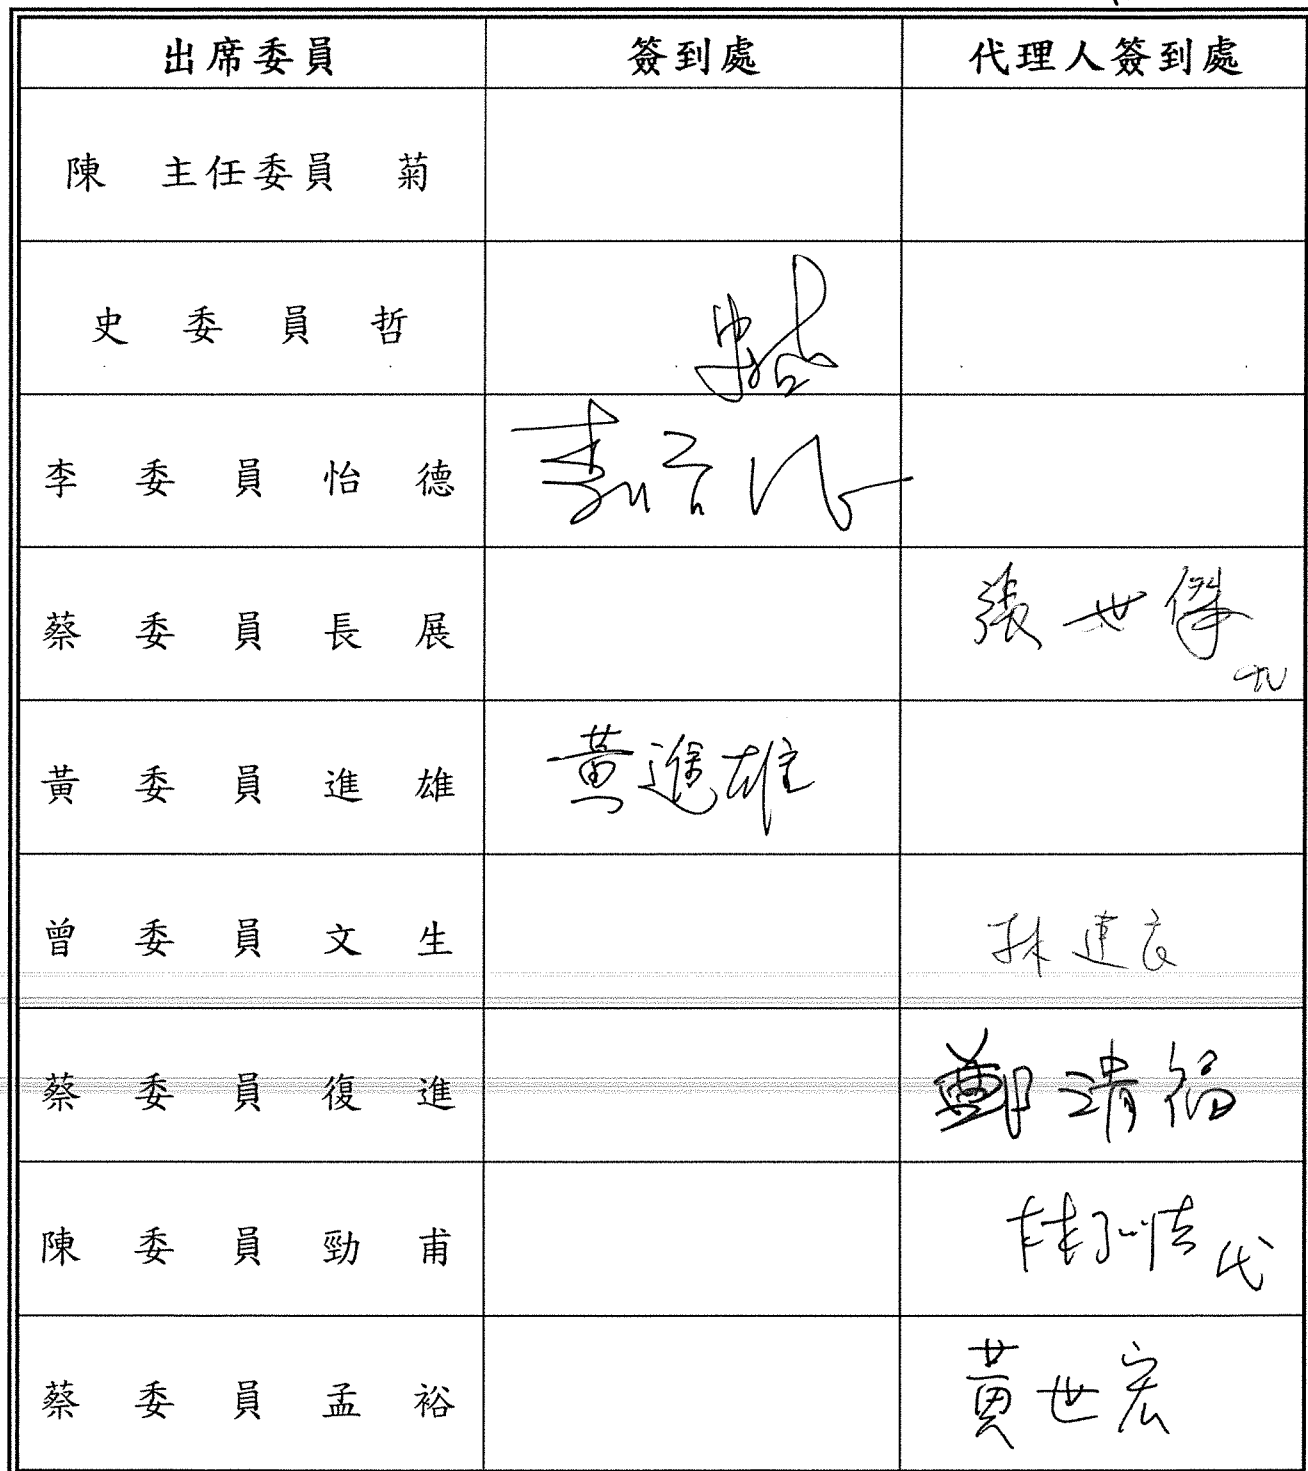 出席委員 簽到處 代理人簽到處
陳 主任委員 菊
史 委 員 哲 史哲
李 委 員 怡 德 李怡德
蔡 委 員 長 展 張世傑
黃 委 員 進 雄 黃進雄
曾 委 員 文 生 林建良
蔡 委 員 復 進 鄭清福
陳 委 員 勁 甫 代
蔡 委 員 孟 裕 黃世宏